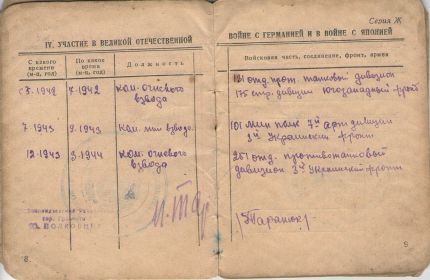 Серия Ж
IV. УЧАСТИЕ В ВЕЛИКОЙ ОТЕЧЕСТВЕННОЙ
ВОЙНЕ С ГЕРМАНИЕЙ И В ВОЙНЕ С ЯПОНИЕЙ
С какого времени (м-ц, год)
По какое время (м-ц, год)
Должность
Войсковая часть, соединение, фронт, армия
7.1942
ком. огневого
взвода
отд. прот. танковый дивизион
175 стр. дивизии Югозападный фронт
7.1943
9.1943
ком. мин взвода
101 мин полк 7й арт дивизии
3й Украинский фронт
12.1943
3.1944
ком. огневого
взвода
отд. противотанковый
дивизион 3й Украинский фронт
/Таранюк/
8.
9